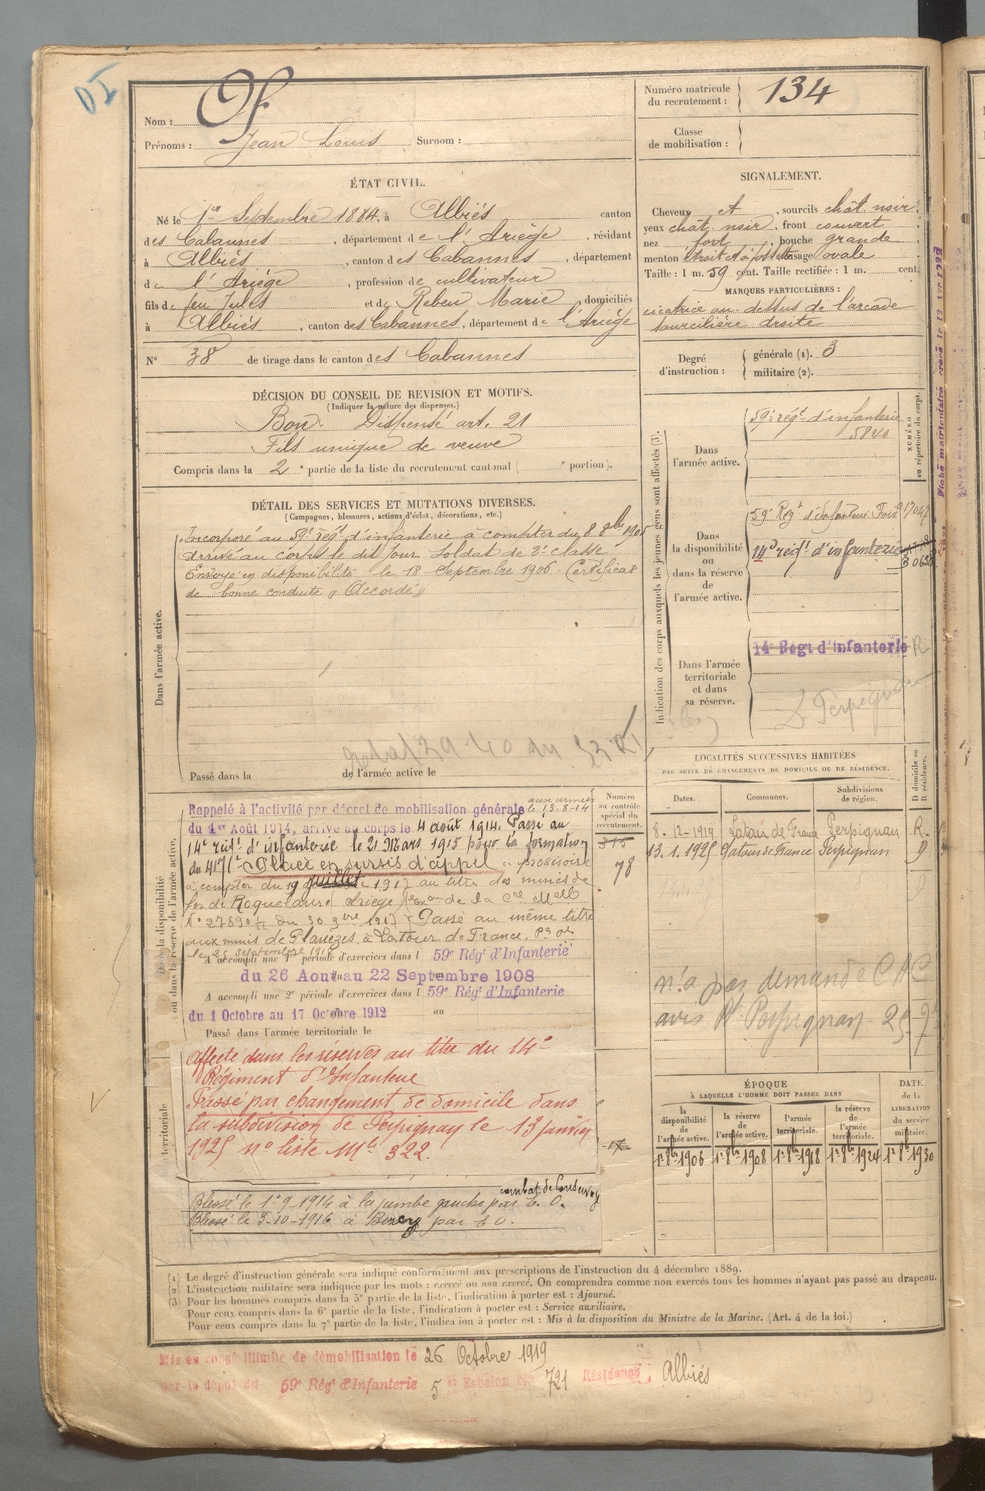 DI
Nom : Of
Prénoms : Jean Louis Surnom :
Numéro matricule du recrutement : 134
Classe de mobilisation :
ÉTAT CIVIL.
Né le 1er Septembre 1884, à Albiés canton
des Cabannes, département de l'Ariège, résidant
à Albiés, canton des Cabannes, département
de l'Ariège, profession de cultivateur
fils de feu Jules et de Reben Marie, domiciliés
à Albiés, canton des Cabannes, département de l'Ariège
N° 38 de tirage dans le canton des Cabannes
SIGNALEMENT.
Cheveux et, sourcils chât. noir,
yeux chât. noir, front couvert
nez fort, bouche grande
menton étroit et à fossette visage ovale
Taille : 1 m. 59 cent. Taille rectifiée : 1 m. cent.
MARQUES PARTICULIÈRES :
cicatrice au-dessus de l'arcade
sourcilière droite
Degré d'instruction : générale (1). 3
militaire (2).
DÉCISION DU CONSEIL DE REVISION ET MOTIFS.
(Indiquer la nature des dispenses.)
Bon. Dispensé art. 21
Fils unique de veuve
Compris dans la 2e partie de la liste du recrutement cantonal ( e portion).
DÉTAIL DES SERVICES ET MUTATIONS DIVERSES.
(Campagnes, blessures, actions d'éclat, décorations, etc.)
Dans l'armée active.
Incorporé au 59e régt d'infanterie à compter du 8 8bre 190
arrivé au corps le dit jour Soldat de 2e classe
Envoyé en disponibilité le 18 Septembre 1906 - Certificat
de bonne conduite "Accordé"
Passé dans la de l'armée active le
Indication des corps auxquels les jeunes gens sont affectés (3).
NUMÉRO au répertoire du corps.
Dans l'armée active.
59e régt d'infanterie
Dans la disponibilité ou dans la réserve de l'armée active.
59e Régt d'infanterie Foix
14e régt d'infanterie
Dans l'armée territoriale et dans sa réserve.
14e Regt d'Infanterie R
Perpignan
LOCALITÉS SUCCESSIVES HABITÉES
PAR SUITE DE CHANGEMENTS DE DOMICILE OU DE RÉSIDENCE.
Dates. Communes. Subdivisions de région. D domicile ou R résidence.
8-12-1919 Latour de France Perpignan R
13.1.1925 Latour de France Perpignan D
n'a pas demandé C A C
avis Perpignan 25
Numéro au contrôle spécial du recrutement.
78
ou dans la réserve de l'armée active.
Rappelé à l'activité par décret de mobilisation générale aux armées le 13-8-14
du 1er Août 1914, arrivé au corps le 4 août 1914. Passé au
14e régt d'infanterie le 21 Mars 1915 pour la formation
du 417e Placé en sursis d'appel
à compter du 19 juillet 1917 au titre des mines de
fer de Roquelaure Ariège
Passé au même titre
aux mines de Planèzes à Latour de France.
le 25 Septembre 1917
A accompli une 1re période d'exercices dans l 59e Rég' d'Infanterie
du 26 Aout au 22 Septembre 1908
A accompli une 2e période d'exercices dans l 59e Rég' d'Infanterie
du 1 Octobre au 17 Octobre 1912 au
Passé dans l'armée territoriale le
territoriale
Affecté dans les réserves au titre du 14e
Régiment d'Infanterie
Passé par changement de domicile dans
la subdivision de Perpignan le 13 janvier
1925 n° liste Mle 322.
Blessé le 1-9 1914 à la jambe gauche par E. O.
Blessé le 3-10-1916 à par E O.
ÉPOQUE
À LAQUELLE L'HOMME DOIT PASSER DANS
DATE de la LIBÉRATION du service militaire.
la disponibilité de l'armée active. la réserve de l'armée active. l'armée territoriale. la réserve de l'armée territoriale.
1er 8bre 1906 1er 8bre 1908 1er 8bre 1918 1er 8bre 1924 1er 8bre 1930
(1) Le degré d'instruction générale sera indiqué conformément aux prescriptions de l'instruction du 4 décembre 1889.
(2) L'instruction militaire sera indiquée par les mots : exercé ou non exercé. On comprendra comme non exercés tous les hommes n'ayant pas passé au drapeau.
(3) Pour les hommes compris dans la 5e partie de la liste, l'indication à porter est : Ajourné.
Pour ceux compris dans la 6e partie de la liste, l'indication à porter est : Service auxiliaire.
Pour ceux compris dans la 7e partie de la liste, l'indication à porter est : Mis à la disposition du Ministre de la Marine. (Art. 4 de la loi.)
Mis en congé illimité de démobilisation le 26 Octobre 1919
par le dépôt du 59e Rég' d'Infanterie 5e Echelon N° 721 Résidence : Albiés